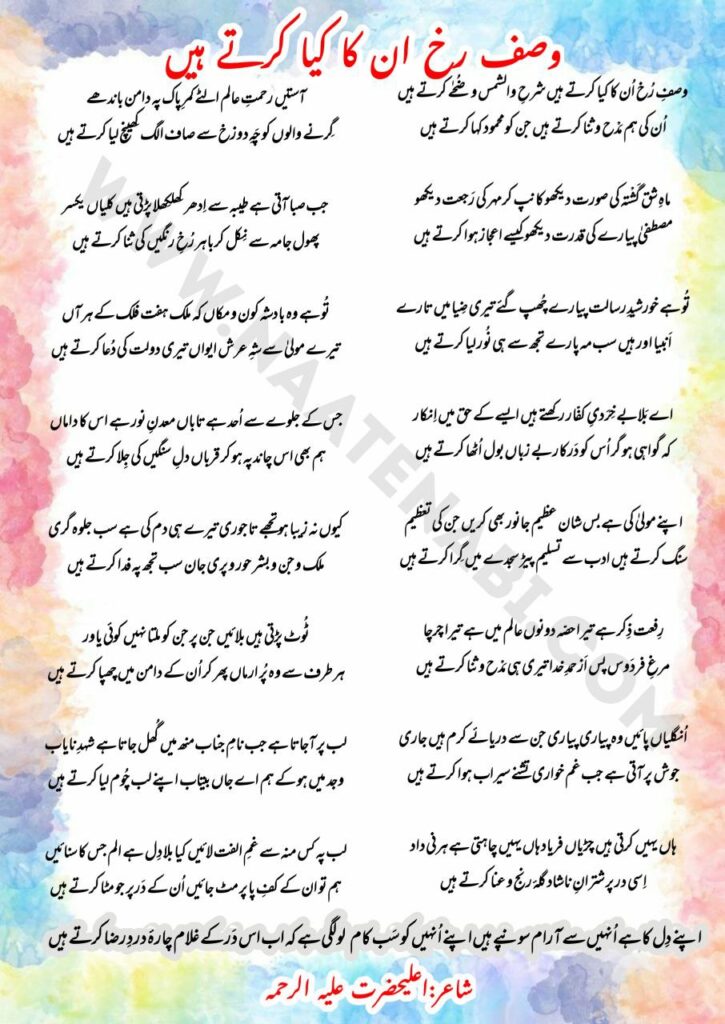 وصف رخ ان کا کیا کرتے ہیں
وصفِ رُخ اُن کا کیا کرتے ہیں شرحِ والشمس وضُحٰے کرتے ہیں
اُن کی ہم مَدْح وثنا کرتے ہیں جن کو محمود کہا کرتے ہیں
ماہِ شق گشتہ کی صورت دیکھو کانپ کر مہر کی رَجعت دیکھو
مصطفیٰ پیارے کی قدرت دیکھو کیسے اعجاز ہوا کرتے ہیں
تُو ہے خورشیدِ رسالت پیارے چُھپ گئے تیری ضِیا میں تارے
اَنبیا اور ہیں سب مہ پارے تجھ سے ہی نُور لیا کرتے ہیں
اے بَلا بے خِرَدیِ کفّار رکھتے ہیں ایسے کے حق میں اِنکار
کہ گواہی ہو گر اُس کو دَرکار بے زباں بول اُٹھا کرتے ہیں
اپنے مولیٰ کی ہے بس شان عظیم جانور بھی کریں جن کی تعظیم
سنگ کرتے ہیں ادب سے تسلیم پیڑ سجدے میں گِرا کرتے ہیں
رِفعت ذِکر ہے تیرا حصّہ دونوں عالم میں ہے تیرا چرچا
مرغِ فردَوس پس اَز حمدِ خدا تیری ہی مَدْح وثنا کرتے ہیں
اُنگلیاں پائیں وہ پیاری پیاری جن سے دریائے کرم ہیں جاری
جوش پر آتی ہے جب غم خواری تشنے سیراب ہوا کرتے ہیں
ہاں یہیں کرتی ہیں چڑیاں فریاد ہاں یہیں چاہتی ہے ہرنی داد
اِسی در پر شترانِ ناشاد گلۂ رنج و عنا کرتے ہیں
آستیں رحمتِ عالم الٹے کمرِ پاک پہ دامن باندھے
گِرنے والوں کو چَہِ دوزخ سے صاف الگ کھینچ لیا کرتے ہیں
جب صبا آتی ہے طیبہ سے اِدھر کھلکھلا پڑتی ہیں کلیاں یکسر
پھول جامہ سے نِکل کر باہر رُخِ رنگیں کی ثنا کرتے ہیں
تُو ہے وہ بادشہِ کون و مکاں کہ ملک ہفت فلک کے ہر آں
تیرے مولیٰ سے شہِ عرش ایواں تیری دولت کی دُعا کرتے ہیں
جس کے جلوے سے اُحد ہے تاباں معدنِ نور ہے اس کا داماں
ہم بھی اس چاند پہ ہو کر قرباں دلِ سنگیں کی جِلا کرتے ہیں
کیوں نہ زیبا ہو تجھے تاجوری تیرے ہی دم کی ہے سب جلوہ گری
ملک و جن و بشر حور و پری جان سب تجھ پہ فدا کرتے ہیں
ٹُوٹ پڑتی ہیں بلائیں جن پر جن کو ملتا نہیں کوئی یاور
ہر طرف سے وہ پُر ارماں پھر کر اُن کے دامن میں چھپا کرتے ہیں
لب پر آجاتا ہے جب نامِ جناب منھ میں گُھل جاتا ہے شہدِ نایاب
وجد میں ہو کے ہم اے جاں بیتاب اپنے لب چُوم لیا کرتے ہیں
لب پہ کس منہ سے غمِ الفت لائیں کیا بلا دِل ہے الم جس کا سنائیں
ہم تو ان کے کفِ پا پر مٹ جائیں اُن کے دَر پر جو مٹا کرتے ہیں
اپنے دِل کا ہے اُنہیں سے آرام سونپے ہیں اپنے اُنہیں کو سَب کام لو لگی ہے کہ اب اس دَر کے غلام چارۂ دردِ رضا کرتے ہیں
شاعر:اعلیحضرت علیہ الرحمہ
WWW.NAATENABI.COM